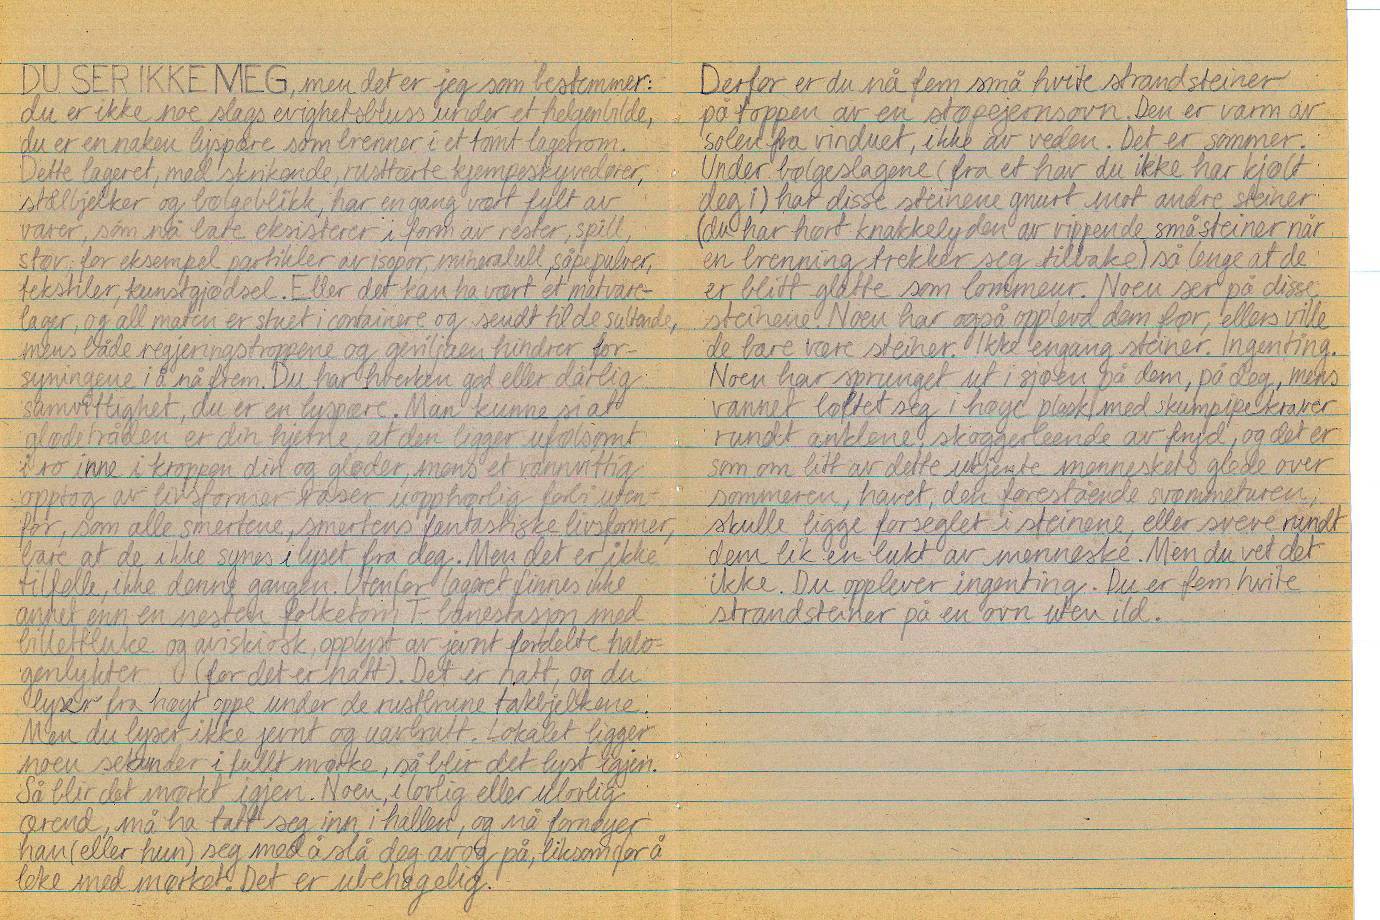 DU SER IKKE MEG, men det er jeg som bestemmer:
du er ikke noe slags evighetsbluss under et helgenbilde,
du er en naken lyspære som brenner i et tomt lagerrom.
Dette lageret, med skrikende, rusttørre kjempeskyvedører,
stålbjelker og bølgeblikk, har en gang vært fylt av
varer, som nå bare eksisterer i form av rester, spill,
støv: for eksempel partikler av isopor, mineralull, såpepulver,
tekstiler, kunstgjødsel. Eller det kan ha vært et matvare-
lager, og all maten er stuet i containere og sendt til de sultende,
mens både regjeringstroppene og geriljaen hindrer for-
syningene i å nå frem. Du har hverken god eller dårlig
samvittighet, du er en lyspære. Man kunne si at
glødetråden er din hjerne, at den ligger ufølsomt
i ro inne i kroppen din og gløder, mens et vannvittig
opptog av livsformer raser uopphørlig forbi uten-
for, som alle smertene, smertens fantastiske livsformer,
bare at de ikke synes i lyset fra deg. Men det er ikke
tilfelle, ikke denne gangen. Utenfor lageret finnes ikke
annet enn en nesten folketom T-banestasjon med
billettluke og aviskiosk, opplyst av jevnt fordelte halo-
genlykter (for det er natt). Det er natt, og du
lyser fra høyt oppe under de rustbrune takbjelkene.
Men du lyser ikke jevnt og uavbrutt. Lokalet ligger
noen sekunder i fullt mørke, så blir det lyst igjen.
Så blir det mørkt igjen. Noen, i lovlig eller ulovlig
ærend, må ha tatt seg inn i hallen, og nå fornøyer
han (eller hun) seg med å slå deg av og på, liksom for å
leke med mørket. Det er ubehagelig.
Derfor er du nå fem små hvite strandsteiner
på toppen av en støpejernsovn. Den er varm av
solen fra vinduet, ikke av veden. Det er sommer.
Under bølgeslagene (fra et hav du ikke har kjølt
deg i) har disse steinene gnurt mot andre steiner
(du har hørt knakkelyden av vippende småsteiner når
en brenning trekker seg tilbake) så lenge at de
er blitt glatte som lommeur. Noen ser på disse
steinene. Noen har også opplevd dem før, ellers ville
de bare være steiner. Ikke engang steiner. Ingenting.
Noen har sprunget ut i sjøen på dem, på deg, mens
vannet løftet seg i høye plask med skumpipekraver
rundt anklene, skoggerleende av fryd, og det er
som om litt av dette ukjente menneskets glede over
sommeren, havet, den forestående svømmeturen,
skulle ligge forseglet i steinene, eller sveve rundt
dem lik en lukt av menneske. Men du vet det
ikke. Du opplever ingenting. Du er fem hvite
strandsteiner på en ovn uten ild.